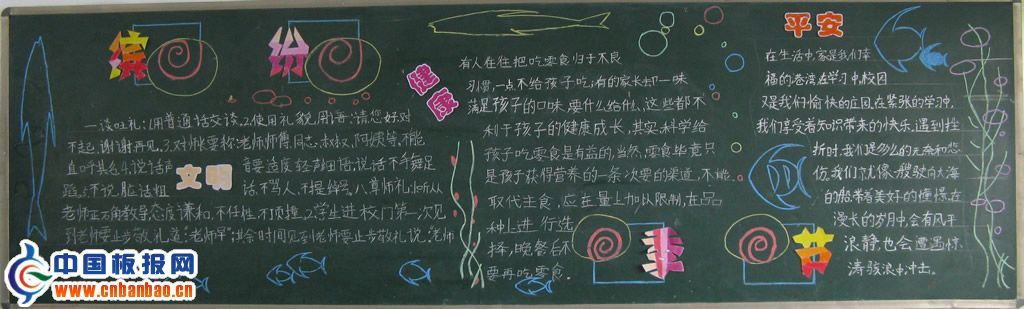 缤
纷
季
节
文明
一谈吐礼:1.用普通话交谈.2.使用礼貌用语:请.您好.对
不起.谢谢.再见.3.对师长要称:老师.师傅.同志.叔叔.阿姨等,不能
直呼其名.4.说话声音要适度轻声细语,说话不手舞足
蹈.不说脏话粗话.不骂人.不提绰号.八尊师礼:听从
老师正确教导态度谦和,不任性.不顶撞.2.学生进校门第一次见
到老师要止步敬礼道:"老师早"其余时间见到老师要止步敬礼说:"老师
健康
有人往往把吃零食归于不良
习惯,一点不给孩子吃;有的家长却一味
满足孩子的口味,要什么给什么,这些都不
利于孩子的健康成长,其实,科学给
孩子吃零食是有益的,当然,零食毕竟只
是孩子获得营养的一条次要的渠道,不能
取代主食,应在量上加以限制,在品
种上进行选
择,晚餐后不
要再吃零食.
平安
在生活中,家是我们幸
福的港湾在学习中,校园
又是我们愉快的庄园,在紧张的学习中,
我们享受着知识带来的快乐,遇到挫
折时,我们是多么的无奈和悲
伤,我们就像一艘驶向大海
的船带着美好的憧憬,在
漫长的岁月中,会有风平
浪静也会遭遇惊
涛骇浪中冲击.
中国板报网
www.cnbanbao.cn